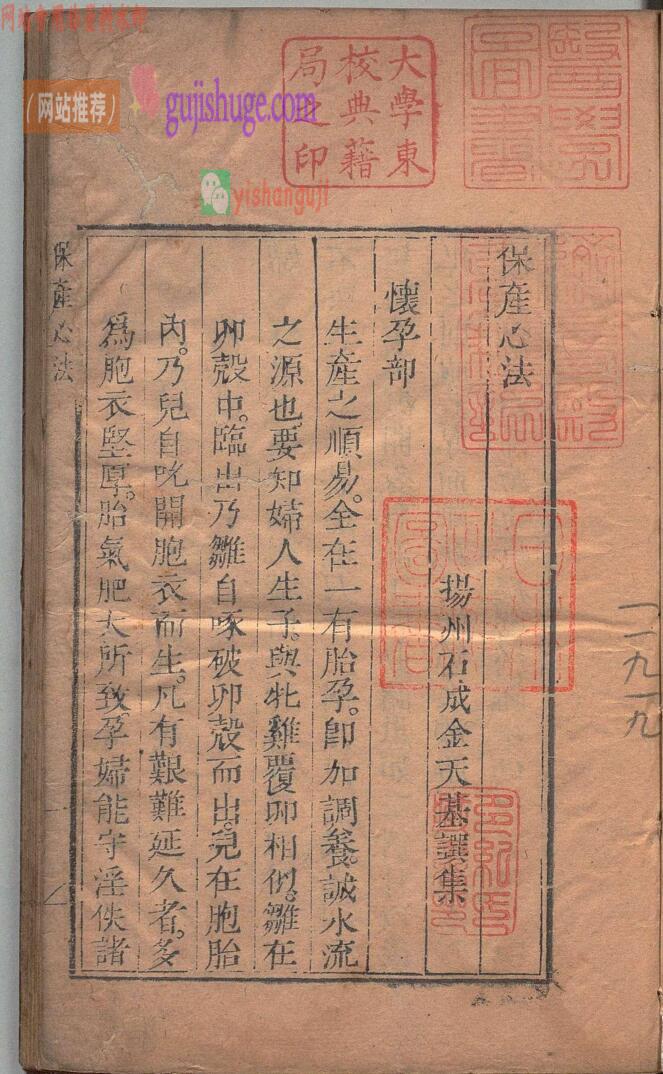 网站推荐
gujishuge.com
yishanguji
大學東
校典籍
局之印
保產必法
揚州石成金天基譔集
懷孕部
生產之順易。全在一有胎孕。卽加調養。誠水流
之源也。要知婦人生子。與牝雞覆卵相似。雛在
卵殼中。臨出乃雛自啄破卵殼而出。兒在胞胎
內。乃兒自吮開胞衣而生。凡有艱難延久者。多
爲胞衣堅厚。胎氣肥大所致。孕婦能守淫佚諸
保產必法
一二九一九